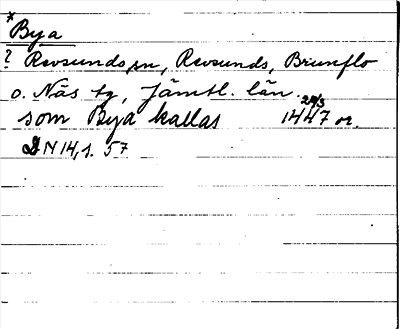 * Bya
? Revsunds sn, Revsunds, Brunflo
o. Näs tg, Jämtl. län.
som Bya kallas 24/3 1447 or.
DN 14, s. 57